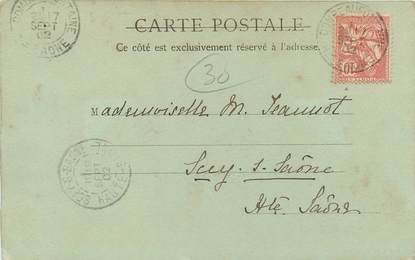 CARTE POSTALE
Ce côté est exclusivement réservé à l'adresse.
30
Mademoiselle M. Jeannot
Scey s. Saône
Hte Saône
SEPT
02
SEPT
02
10